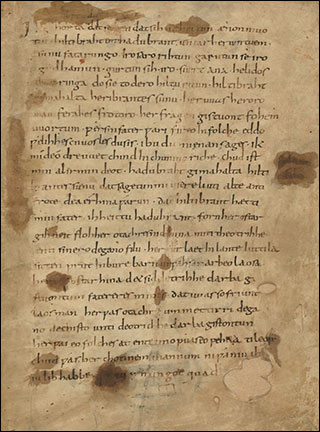 Ik gihorta đat seggen đat sih urhettun ænon muo
tin hiltibraht enti hađubrant untar heriun tuem
sunu fatarungo iro saro rihtun garutun se iro
guđhamun gurtun sih iro suert ana helidos
ringa do sie to dero hiltu ritun hiltibraht
gimahalta heribrantes sunu her uuas heroro
man ferahes frotoro her fragen gistuont fohem
uuortum ƿer sin fater ƿari fireo in folche eddo
ƿelihhes cnuosles du sis ibu du mi enan sages ik
mi de odre uuet chind in chunincriche chud ist
min al irmindeot hadubraht gimahalta hilti
brantes sunu dat sagetun mi usere liuti alte anti
frote dea erhina ƿarun dat hiltibrant hætti
min fater ih heittu hadubrant forn her ostar
gihueit floh her otachres nid hina miti theotrihhe
enti sinero degano filu her furlaet in lante luttila
sitten prut in bure barn unƿahsan arbeo laosa
her ostar hina de sid detrihhe darba gi
stuontum fateres mines dat uuas so friunt
laos man her ƿas otachre ummet tirri dega
no dechisto unti deotrichhe darba gistontun
her ƿas eo folches at ente imo ƿuas eo peheta ti leop
chud ƿas her chonnem mannum ni ƿaniu ih
iu lib habbe quad